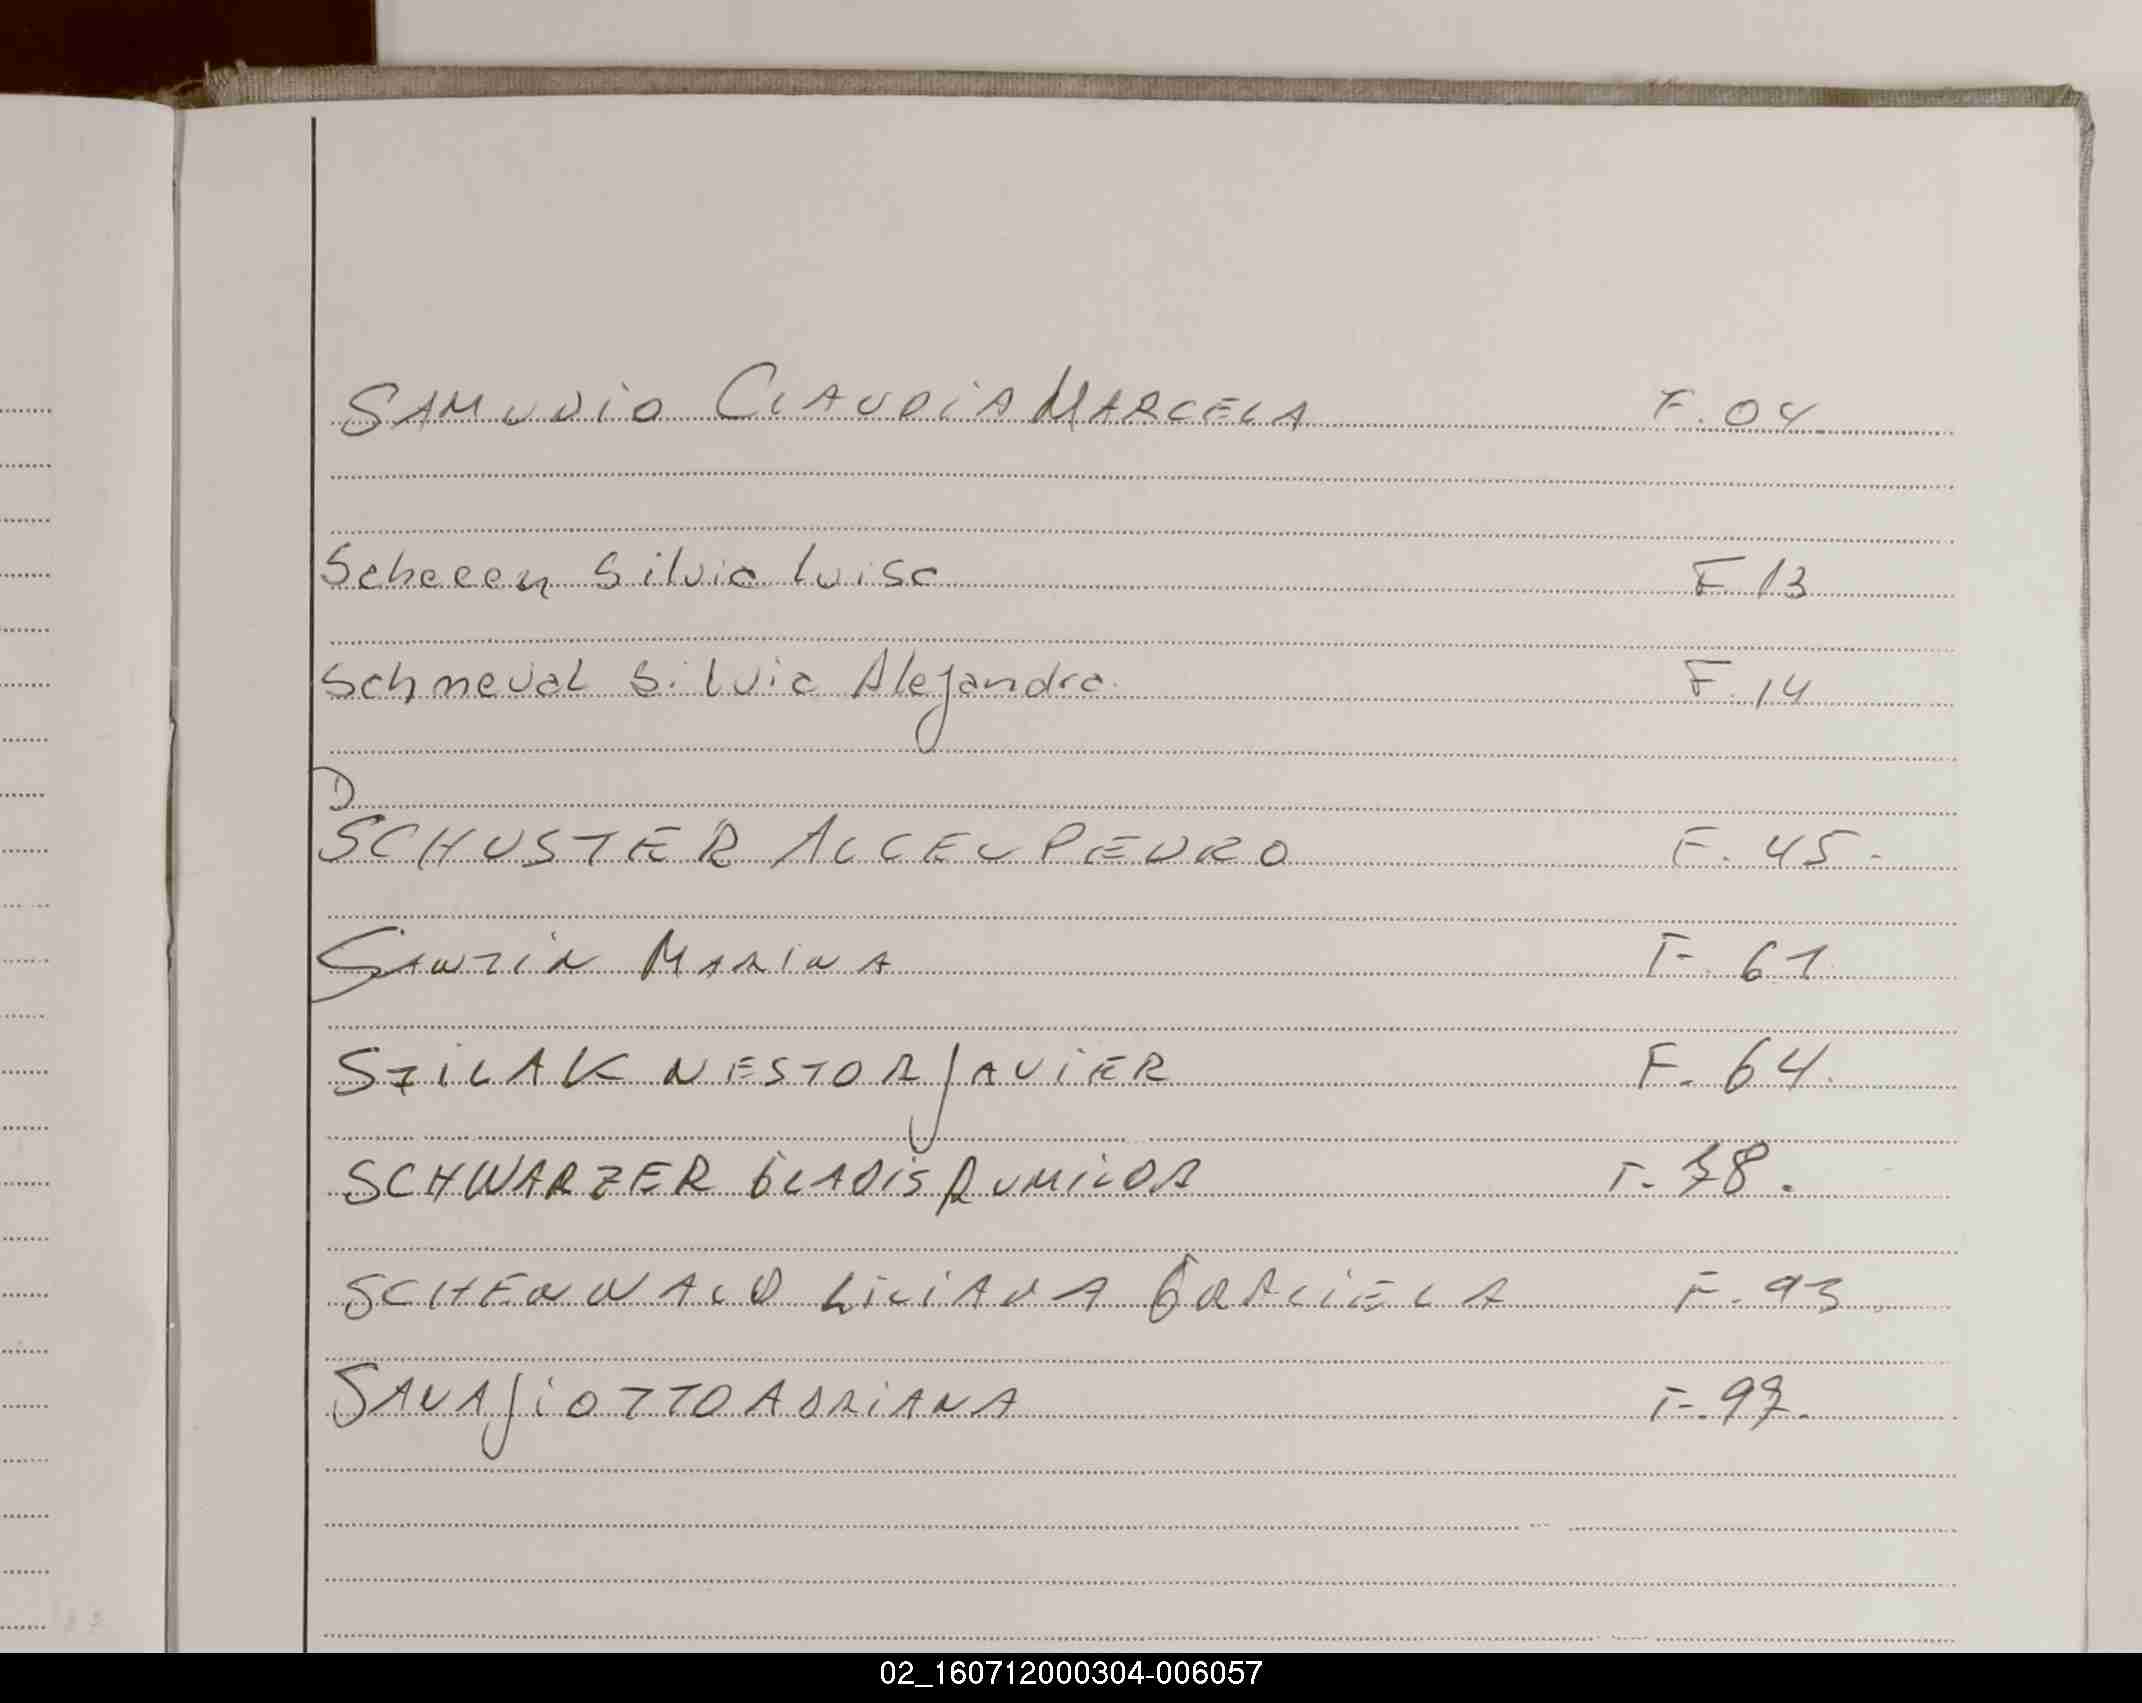 SAMUDIO CLAUDIA MARCELA F. 04
Scheeen Silvia luisa F 13
Schneval Silvia Alejandra F. 14
D
SCHUSTER ACCEL PEDRO F. 45.
SANZIN MARINA F. 61
SZILAK NESTOR JAVIER F. 64.
SCHWARZER GLADIS RUMILDA F. 78.
SCHENWALD LILIANA GRACIELA F. 93.
SAVAJIOTTO ADRIANA F. 97.
02_160712000304-006057